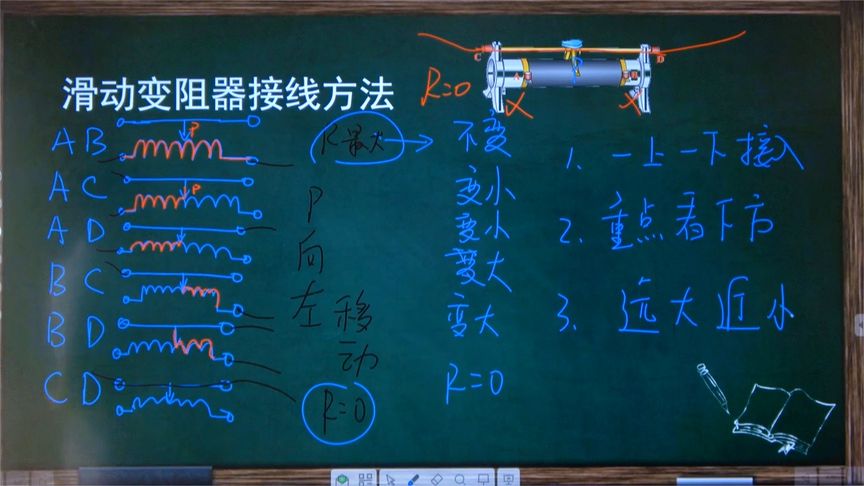 滑动变阻器接线方法
R=0
C
D
P
A
B
× ×
AB P
AC P
AD
BC
BD
CD
R最大
P向左移动
R=0
不变
变小
变小
变大
变大
R=0
1. 一上一下接入
2. 重点看下方
3. 远大近小